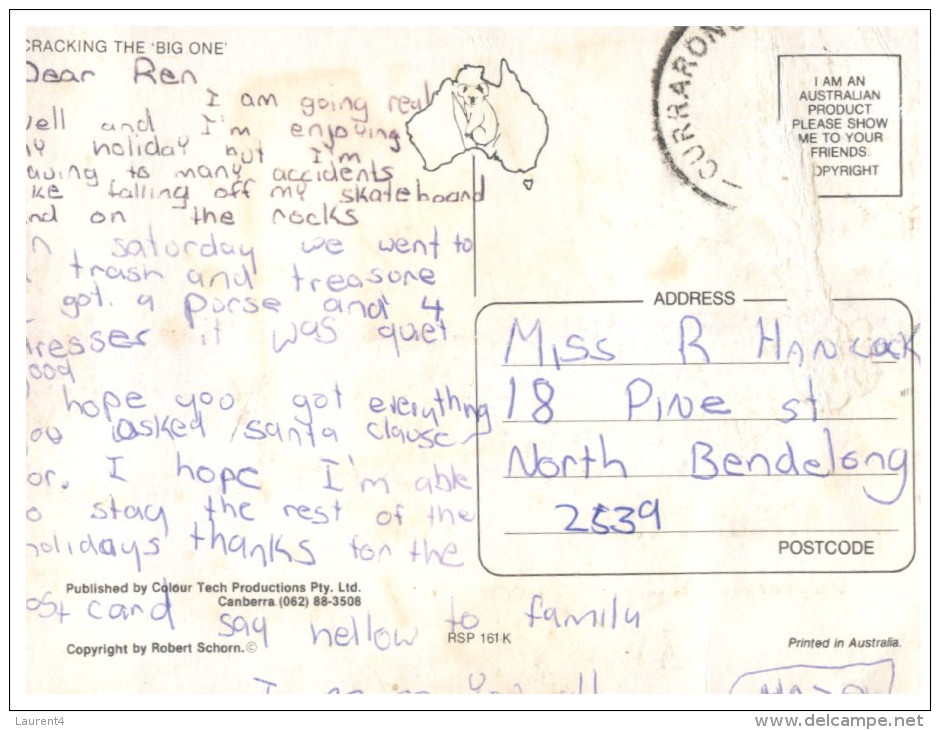 CRACKING THE 'BIG ONE'
Dear Ren
I am going real
well and I'm enjoying
my holiday but I'm
having to many accidents
like falling off my skateboard
and on the rocks
on saturday we went to
trash and treasure
got. a porse and 4
dresses it was quiet
good
hope you got everything
you asked santa clause
for. I hope I'm able
to stay the rest of the
holidays thanks for the
Published by Colour Tech Productions Pty. Ltd.
Canberra (062) 88-3508
post card say hellow to family
Copyright by Robert Schorn.©
RSP 161 K
Printed in Australia.
CURRARONG
I AM AN
AUSTRALIAN
PRODUCT
PLEASE SHOW
ME TO YOUR
FRIENDS.
COPYRIGHT
ADDRESS
Miss R Hancock
18 Pine st
North Bendelong
2539
POSTCODE
Laurent4
www.delcampe.net